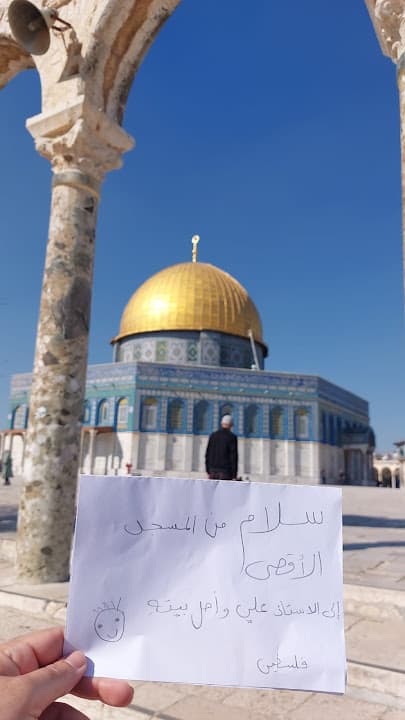 سلام من المسجد
الأقصى
إلى الاستاذ علي وأهل بيته
فلسطين